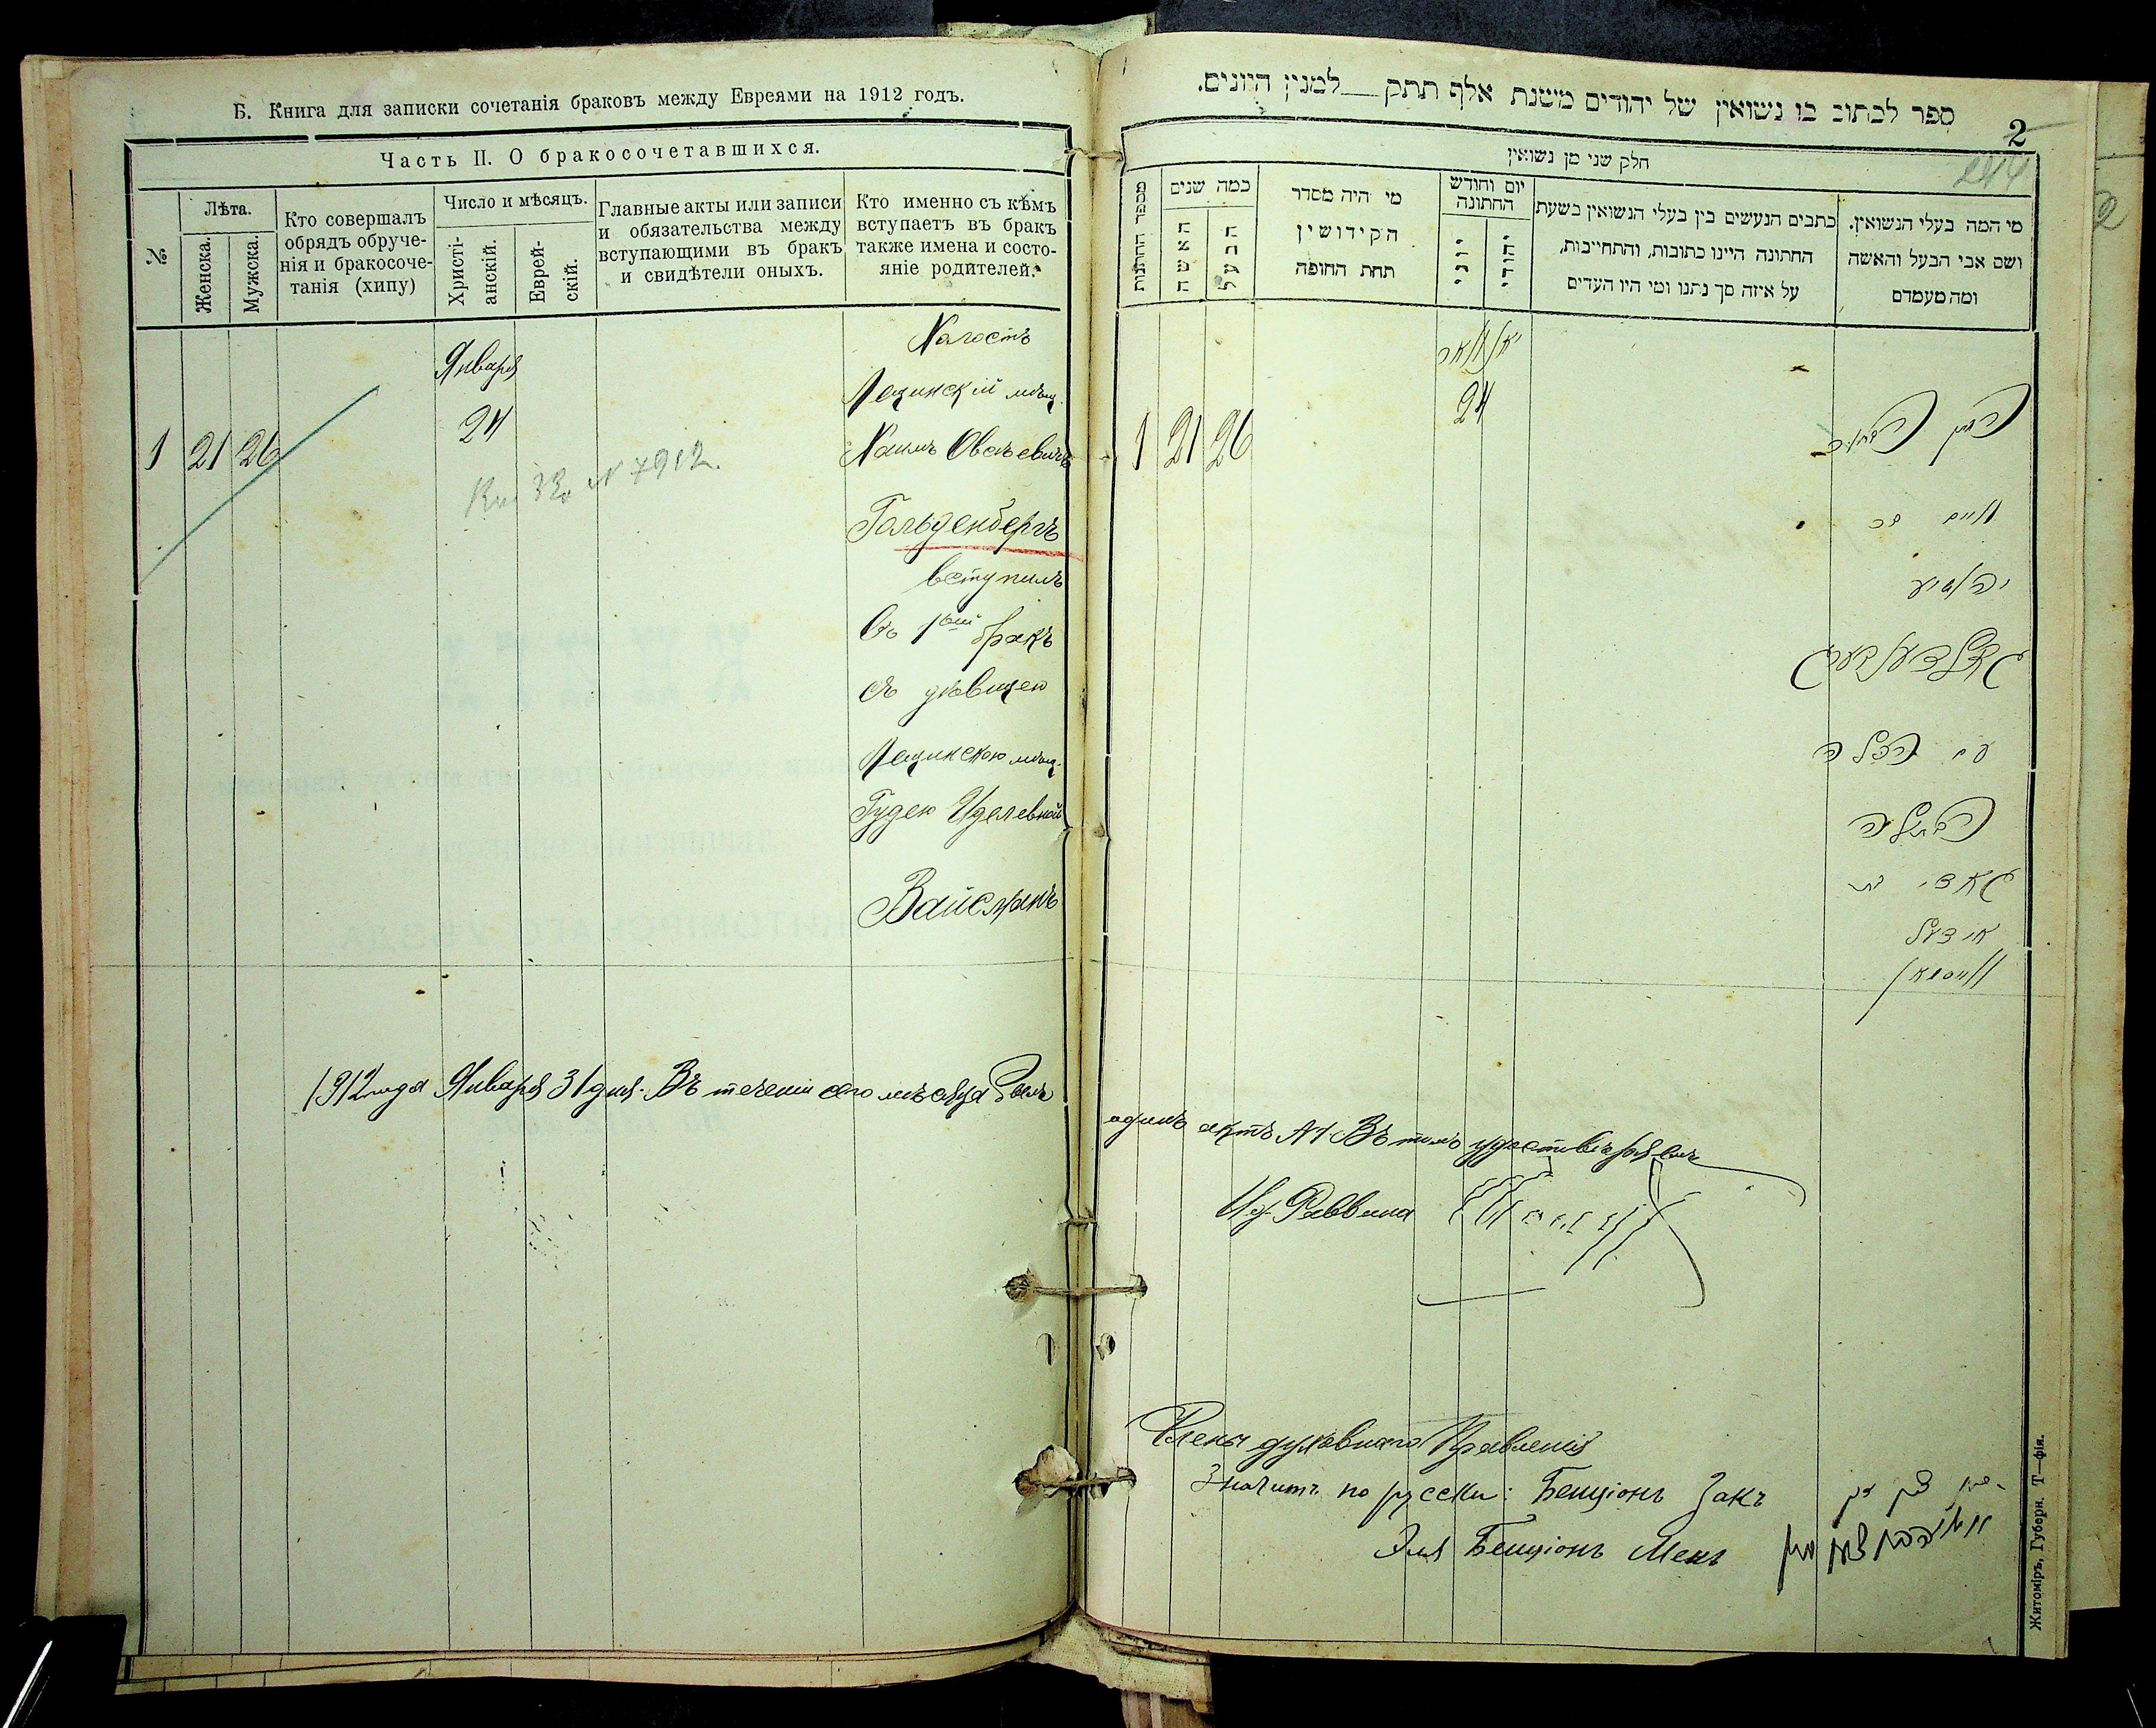 Б. Книга для записки сочетанія браковъ между Евреями на 1912 годъ.
Часть II. О бракосочетавшихся.
№
Лѣта.
Женска.
Мужска.
Кто совершалъ
обрядъ обруче-
нія и бракосоче-
танія (хипу)
Число и мѣсяцъ.
Христі-
анскій.
Еврей-
скій.
Главные акты или записи
и обязательства между
вступающими въ бракъ
и свидѣтели оныхъ.
Кто именно съ кѣмъ
вступаетъ въ бракъ
также имена и состо-
яніе родителей.
1
21
26
Января
24
N 7912.
Холостъ
мѣщ.
Хаимъ Овсѣевичъ
Гольденбергъ
вступилъ
Въ 1ый бракъ
съ дѣвицею
мѣщ.
Гудею Иделевной
Вайсманъ
1912 года Января 31 дня. Въ теченіи сего мѣсяца былъ
ספר לכתוב בו נשואין של יהודים משנת אלף תתק למנין היונים.
2
244
חלק שני מן נשואין
מספר החתונות
כמה שנים
האשה
הבעל
מי היה מסדר
הקידושין
תחת החופה
יום וחודש
החתונה
יוני
יהודי
כתבים הנעשים בין בעלי הנשואין בשעת
החתונה היינו כתובות, והתחייבות,
על איזה סך נתנו ומי היו העדים
מי המה בעלי הנשואין.
ושם אבי הבעל והאשה
ומה מעמדם
1
21
26
יאנואר
24
חיים בר
יהושיע
גאלדענבערג
עם
הבתולה
גאדי בת
אידעל
ווייסמאן
одинъ актъ №1 Въ томъ удостовѣряемъ
И.д. Раввина
Члены духовнаго Правленія
Значитъ по русски: Бенціонъ Закъ
Эля Бенціонъ Менъ
בן ציון זק
Житоміръ, Губерн. Т—фія.